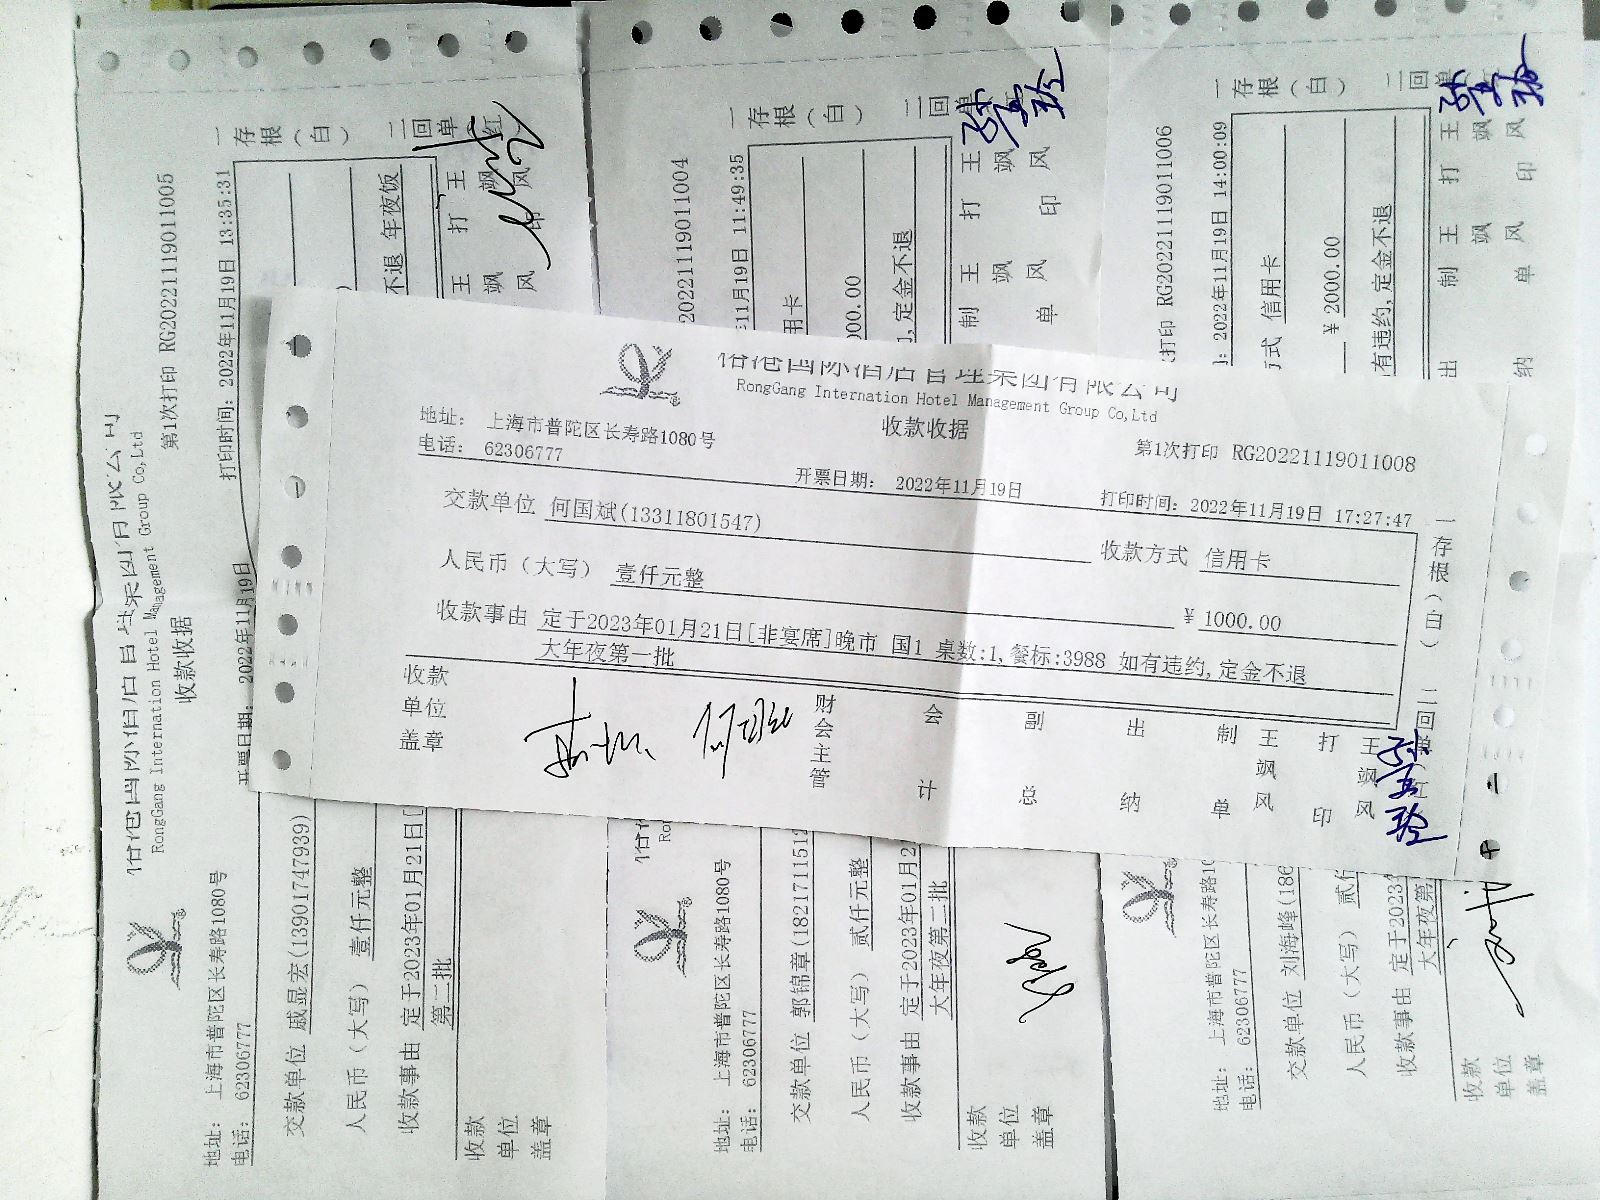 RongGang Internation Hotel Management Group Co,Ltd
收款收据
地址： 上海市普陀区长寿路1080号
电话： 62306777
第1次打印 RG20221119011008
开票日期： 2022年11月19日
打印时间：2022年11月19日 17:27:47
交款单位 何国斌(13311801547)
收款方式 信用卡
人民币（大写） 壹仟元整
￥ 1000.00
收款事由 定于2023年01月21日[非宴席]晚市 国1 桌数:1,餐标:3988 如有违约,定金不退
大年夜第一批
收款单位盖章
何国斌
财会主管
会计
副总
出纳
制单
王飒风
打印
王飒风
一存根（白）
二回单
RongGang Internation Hotel Management Group Co,Ltd
收款收据
第1次打印 RG20221119011005
地址： 上海市普陀区长寿路1080号
电话： 62306777
开票日期： 2022年11月19日
打印时间：2022年11月19日 13:35:31
交款单位 戚显宏(13901747939)
人民币（大写） 壹仟元整
收款事由 定于2023年01月21日[
不退 年夜饭
第二批
收款单位盖章
王飒风
打印
王飒风
一存根（白）
二回单
20221119011004
地址： 上海市普陀区长寿路1080号
电话： 62306777
11月19日 11:49:35
交款单位 郭锦章(1821711512
用卡
人民币（大写） 贰仟元整
00.00
收款事由 定于2023年01月2
,定金不退
大年夜第二批
收款单位盖章
制单
王飒风
打印
王飒风
一存根（白）
二回单
打印 RG20221119011006
地址： 上海市普陀区长寿路10
电话： 62306777
: 2022年11月19日 14:00:09
交款单位 刘海峰(186
方式 信用卡
人民币（大写） 贰仟
￥ 2000.00
收款事由 定于2023
有违约,定金不退
大年夜第
收款单位盖章
出纳
制单
王飒风
打印
王飒风
一存根（白）
二回单